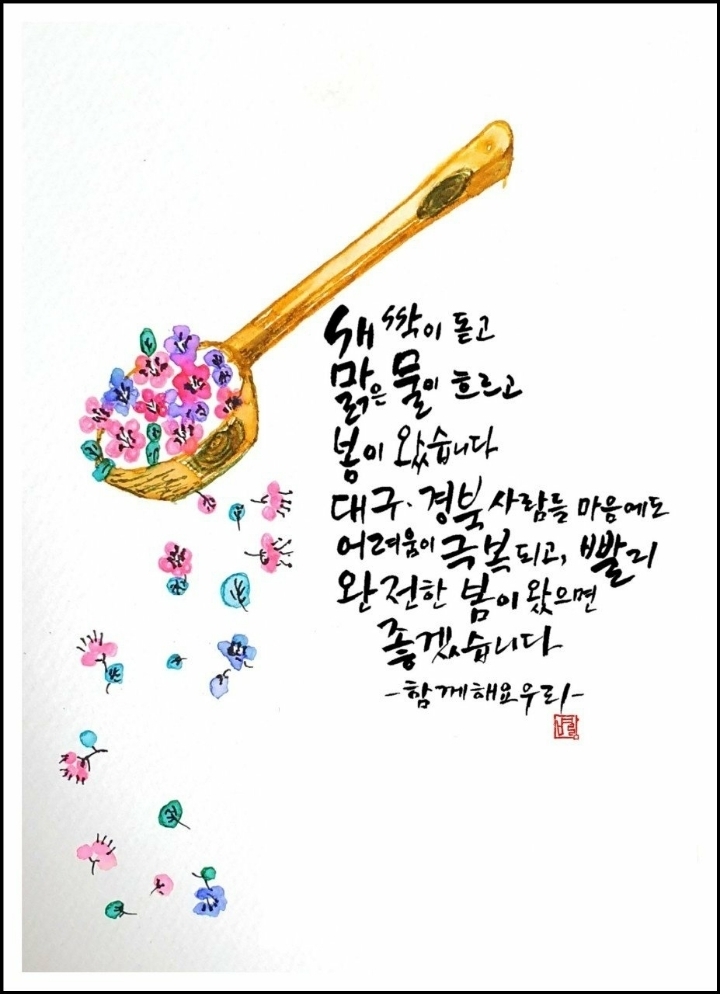 새싹이 돋고
맑은 물이 흐르고
봄이 왔습니다
대구·경북 사람들 마음에도
어려움이 극복되고, 빨리
완전한 봄이 왔으면
좋겠습니다
-함께해요우리-